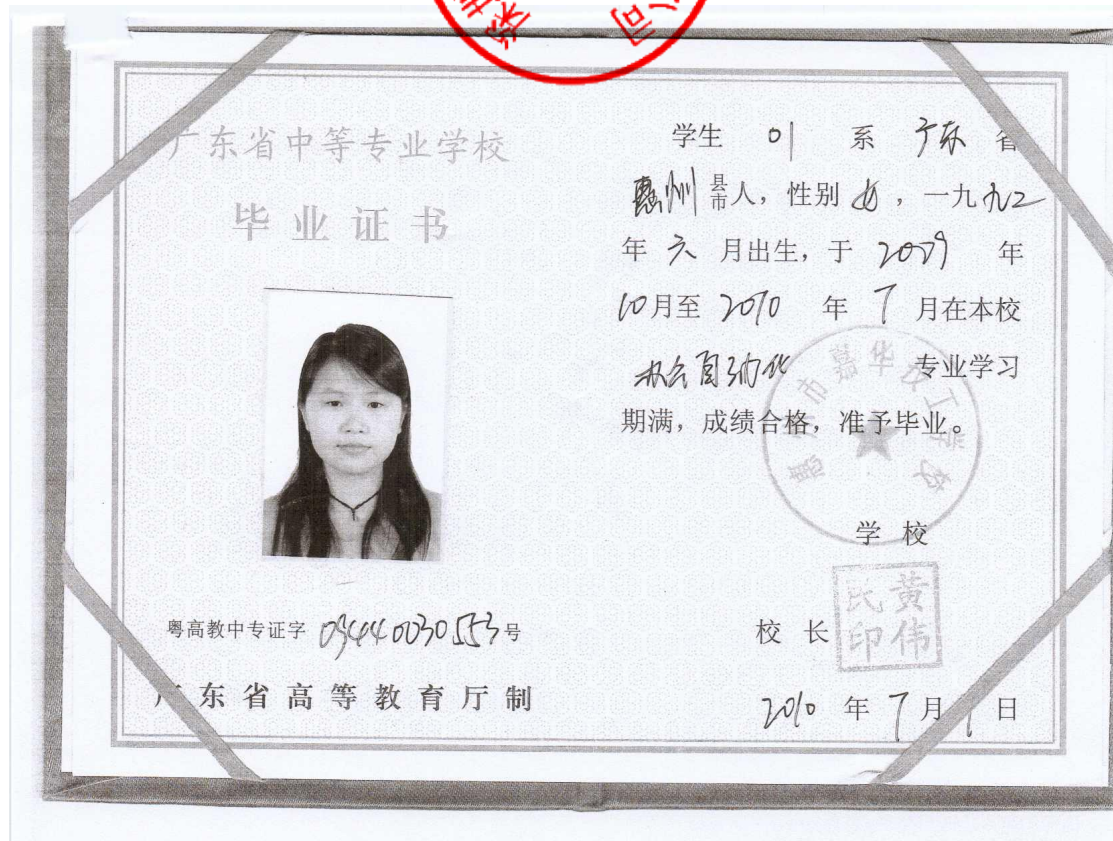 深圳 公司
广东省中等专业学校
毕业证书
粤高教中专证字 094440030553号
广东省高等教育厅制
学生 系 广东 省
惠州 县市人，性别 女，一九九二
年 六 月出生，于 2009 年
10月至 2010 年 7 月在本校
办公自动化 专业学习
期满，成绩合格，准予毕业。
惠州市嘉华技工学校
学校
校长
黄伟氏印
2010 年 7 月 1 日